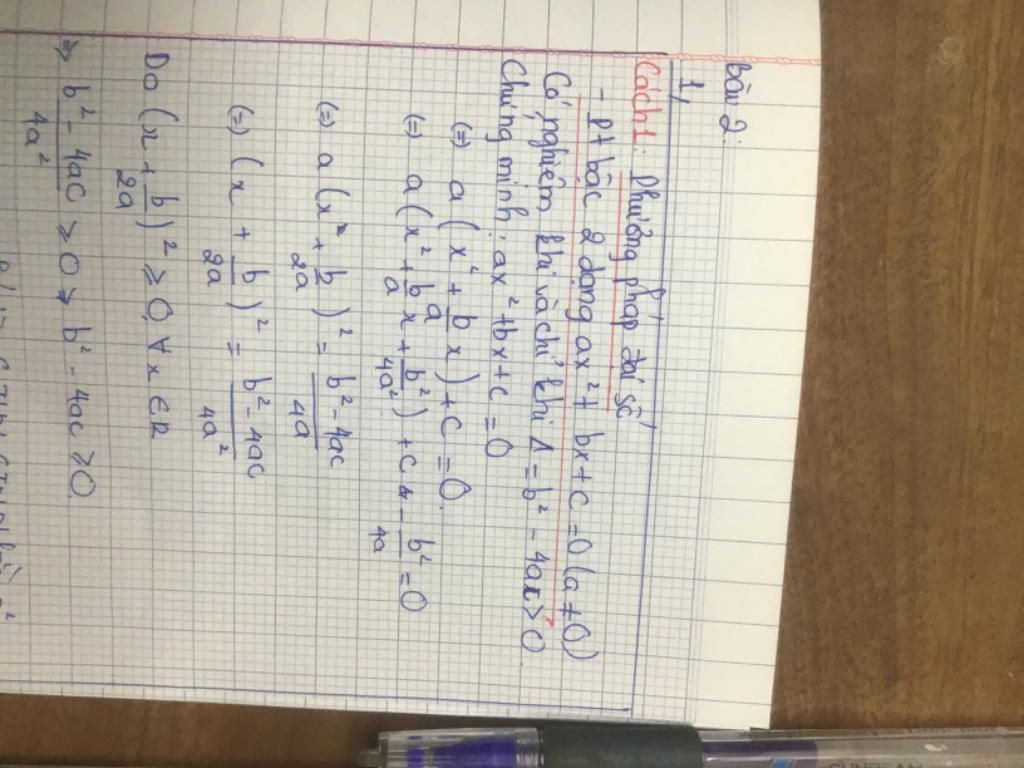 Bài 2:
1,
Cách 1: Phương pháp đại số
- Pt bậc 2 dạng ax² + bx + c = 0 (a ≠ 0)
Có nghiệm khi và chỉ khi Δ = b² - 4ac ≥ 0
Chứng minh: ax² + bx + c = 0
(=) a (x² + b/a x) + c = 0.
(=) a (x² + b/a x + b²/4a²) + c - b²/4a = 0
(=) a (x + b/2a)² = b² - 4ac/4a
(=) (x + b/2a)² = b² - 4ac/4a²
Do (x + b/2a)² ≥ 0, ∀ x ∈ R
=> b² - 4ac/4a² ≥ 0 => b² - 4ac ≥ 0